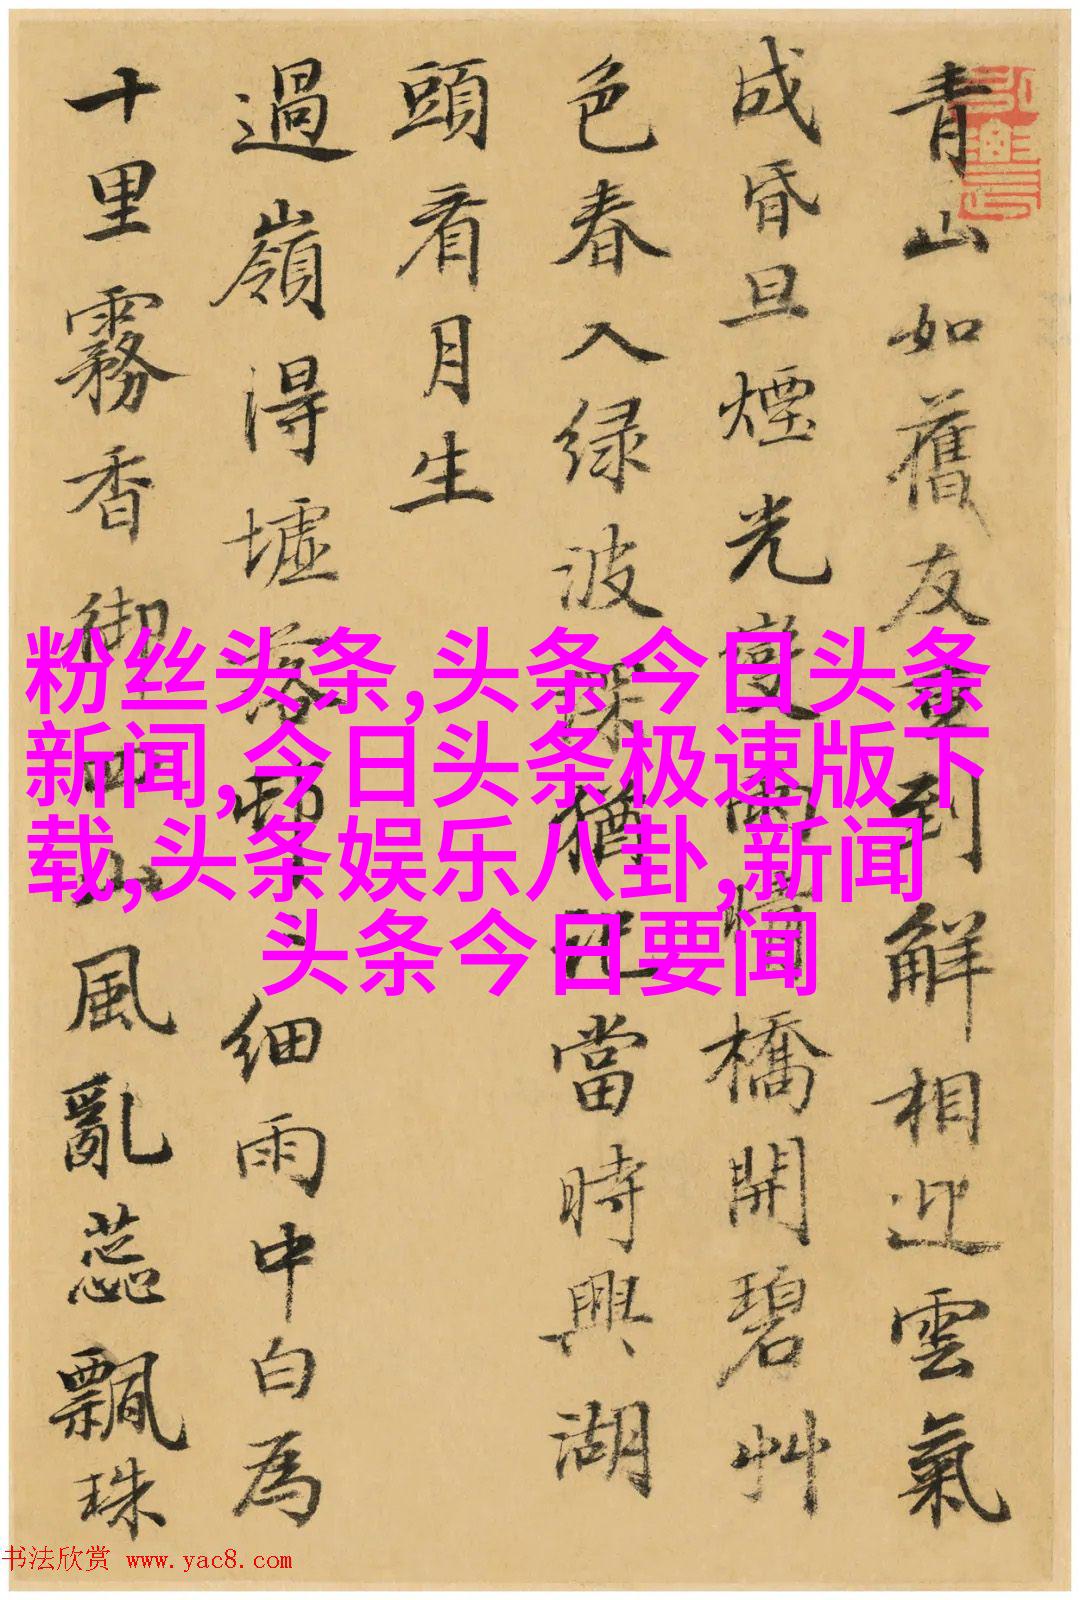 青山如舊友重到解相迎雲氣
成昏旦煙光變雨晴橋開碧艸
色春入绿波深猶記當時興湖
頭看月生
過嶺得墟落郵細雨中白為
十里霧香御四山風亂蕊飄珠
粉丝头条,头条今日头条
新闻,今日头条极速版下
载,头条娱乐八卦,新闻
头条今日要闻
书法欣赏 www.yac8.com